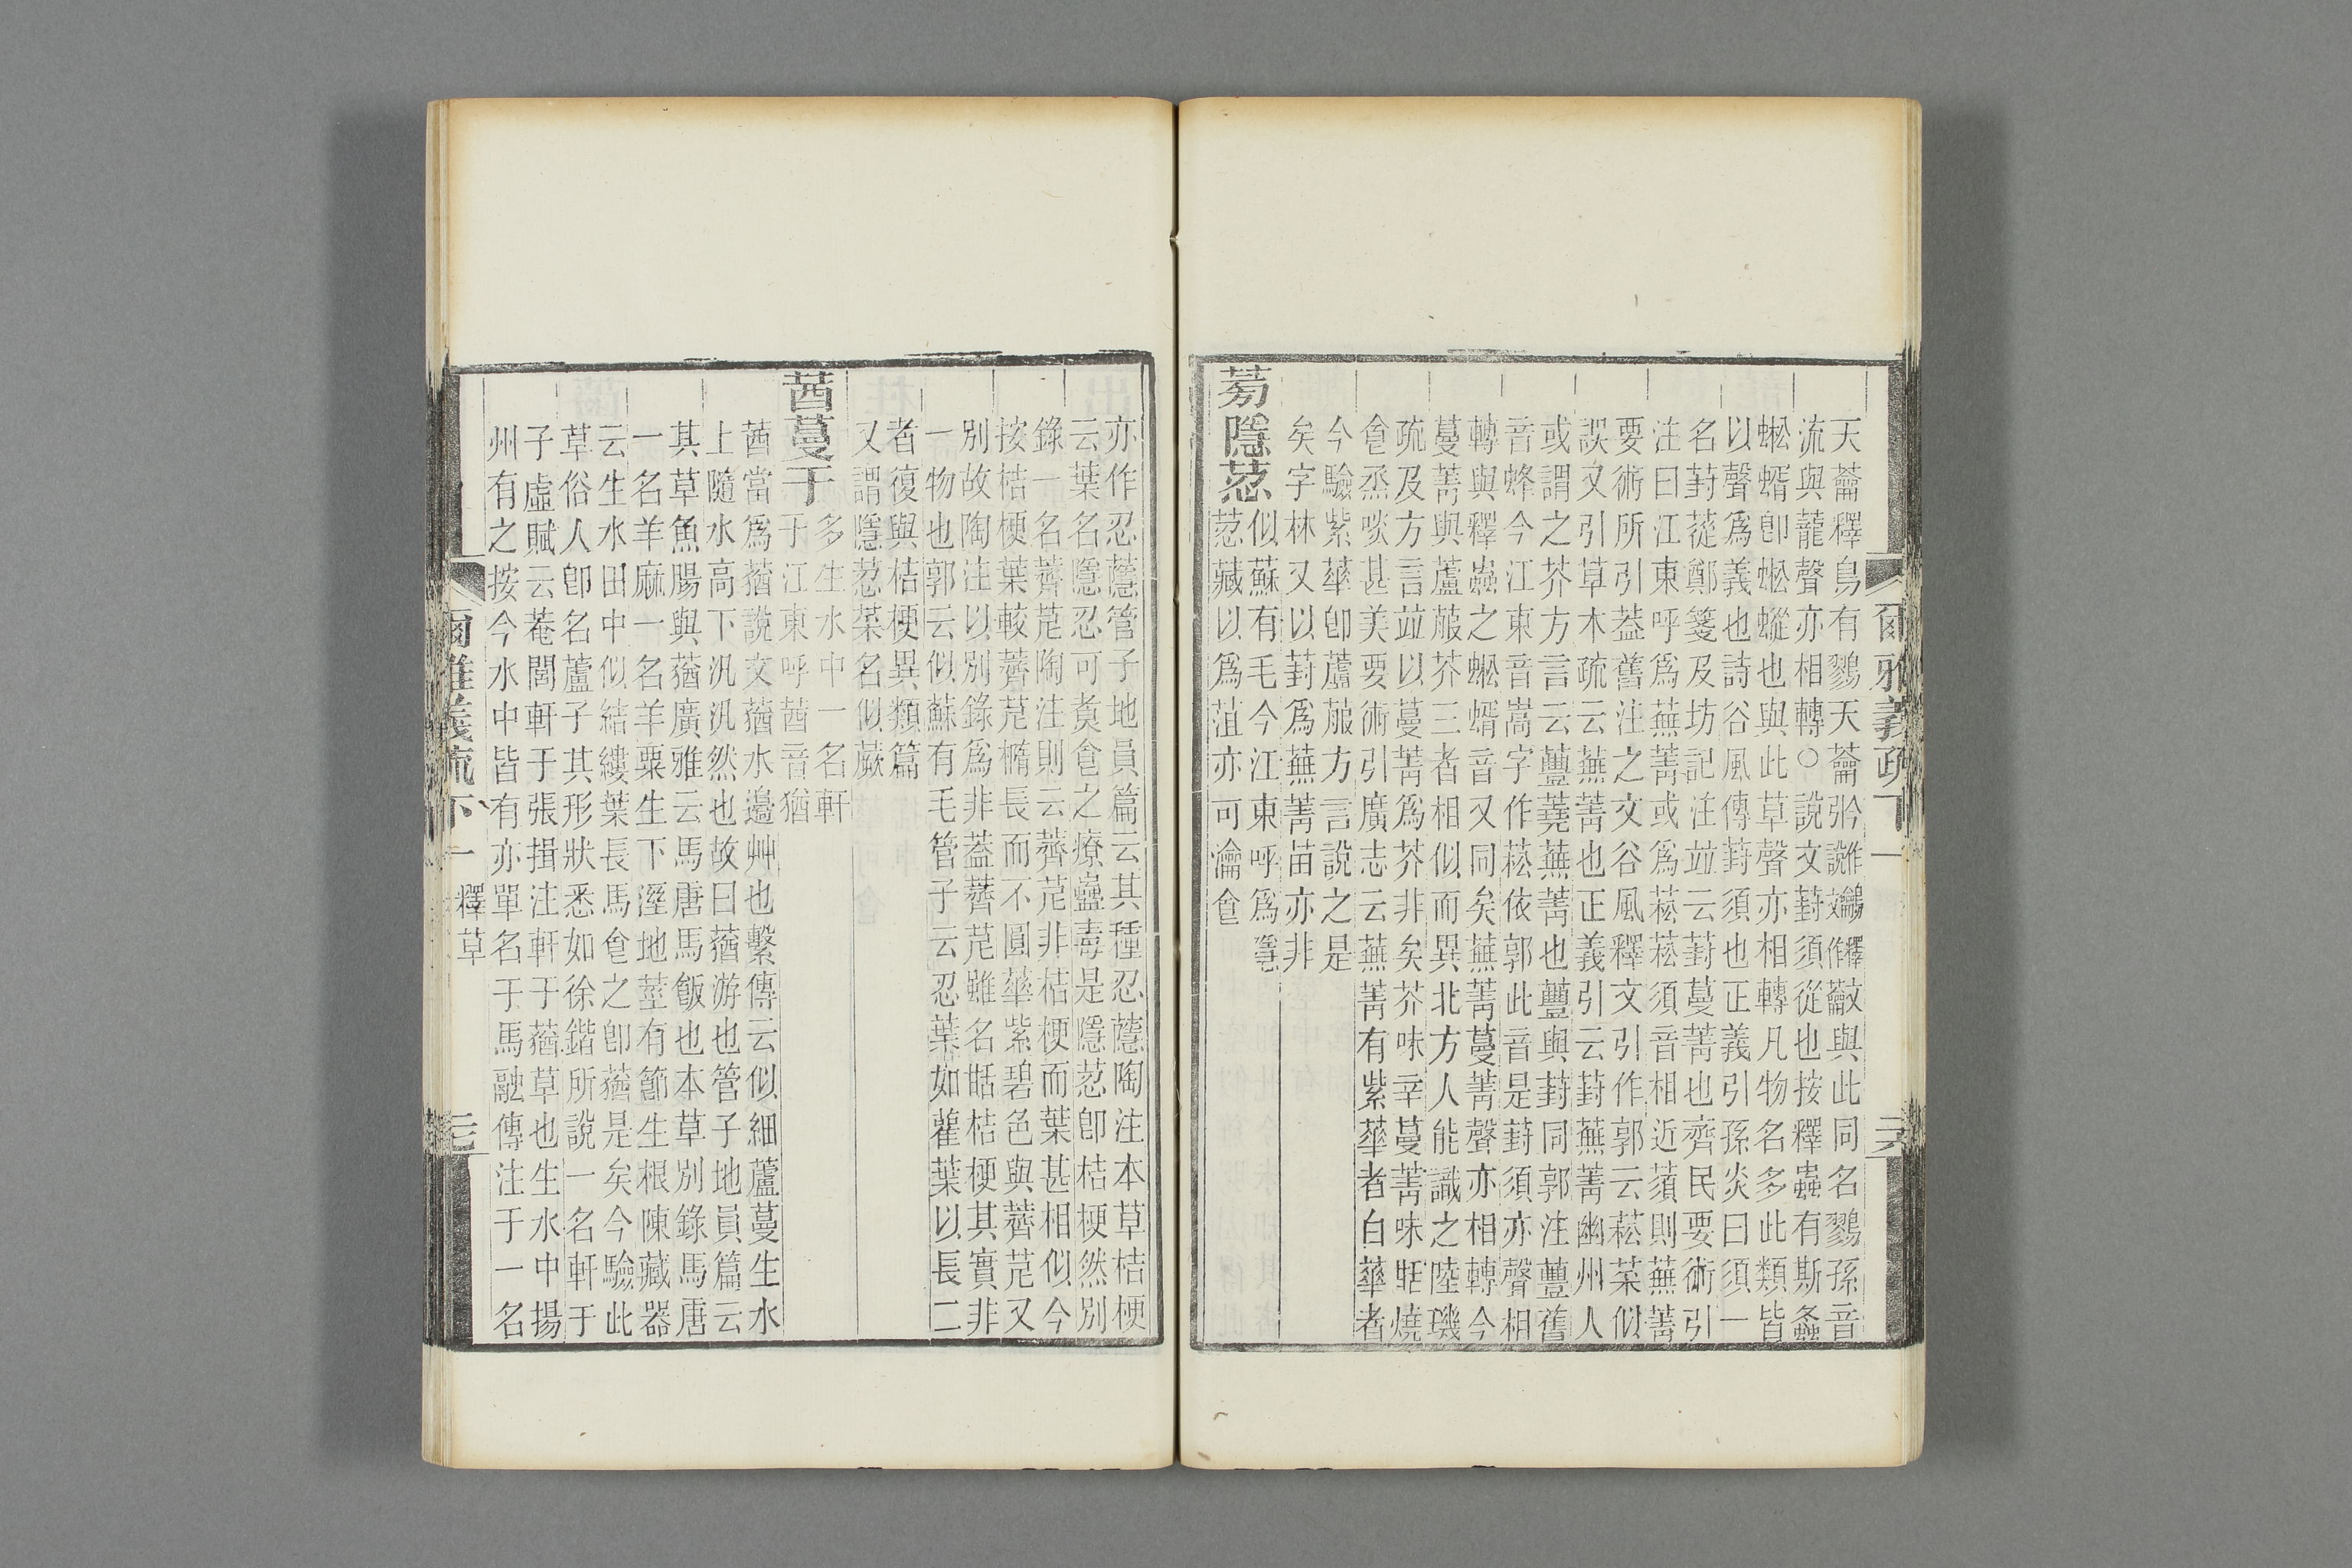 爾雅義疏下一
天蘥釋鳥有鷚天蘥弥説文作鷚釋文作蘥與此同名鷚孫音
流與蘢聲亦相轉○說文葑須從也按釋蟲有斯螽
蜙蝑卽蜙䗥也與此草聲亦相轉凡物名多此類皆
以聲爲義也詩谷風傳葑須也正義引孫炎曰須一
名葑蓯鄭箋及坊記注竝云葑蔓菁也齊民要術引
注曰江東呼爲蕪菁或爲菘菘須音相近蕦則蕪菁
要術所引蓋舊注之文谷風釋文引作郭云菘菜似
誤又引草木疏云蕪菁也正義引云葑蕪菁幽州人
或謂之芥方言云蘴蕘蕪菁也蘴與葑同郭注蘴舊
音蜂今江東音嵩字作菘依郭此音是葑須亦聲相
轉與釋蟲之蜙蝑音又同矣蕪菁蔓菁聲亦相轉今
蔓菁與蘆菔芥三者相似而異北方人能識之陸璣
疏及方言竝以蔓菁爲芥非矣芥味辛蔓菁味甛燒
食烝啖甚美要術引廣志云蕪菁有紫華者白華者
今驗紫華卽蘆菔方言說之是
矣字林又以葑爲蕪菁苗亦非
蒡隱荵
似蘇有毛今江東呼爲隱
荵藏以爲菹亦可瀹食
亦作忍蘟管子地員篇云其種忍蘟陶注本草桔梗
云葉名隱忍可煑食之療蠱毒是隱荵卽桔梗然別
錄一名薺苨陶注則云薺苨非桔梗而葉甚相似今
按桔梗葉較薺苨橢長而不圓華紫碧色與薺苨又
別故陶注以別錄爲非蓋薺苨雖名甛桔梗其實非
一物也郭云似蘇有毛管子云忍葉如雚葉以長二
者復與桔梗異類篇
又謂隱荵菜名似蕨
茜蔓于
多生水中一名軒
于江東呼茜音猶
茜當爲蕕說文蕕水邊艸也繫傳云似細蘆蔓生水
上隨水高下汎汎然也故曰蕕游也管子地員篇云
其草魚腸與蕕廣雅云馬唐馬飯也本草別錄馬唐
一名羊麻一名羊粟生下溼地莖有節生根陳藏器
云生水田中似結縷葉長馬食之卽蕕是矣今驗此
草俗人卽名蘆子其形狀悉如徐鍇所說一名軒于
子虛賦云菴閭軒于張揖注軒于蕕草也生水中揚
州有之按今水中皆有亦單名于馬融傳注于一名
爾雅義疏下一 釋草